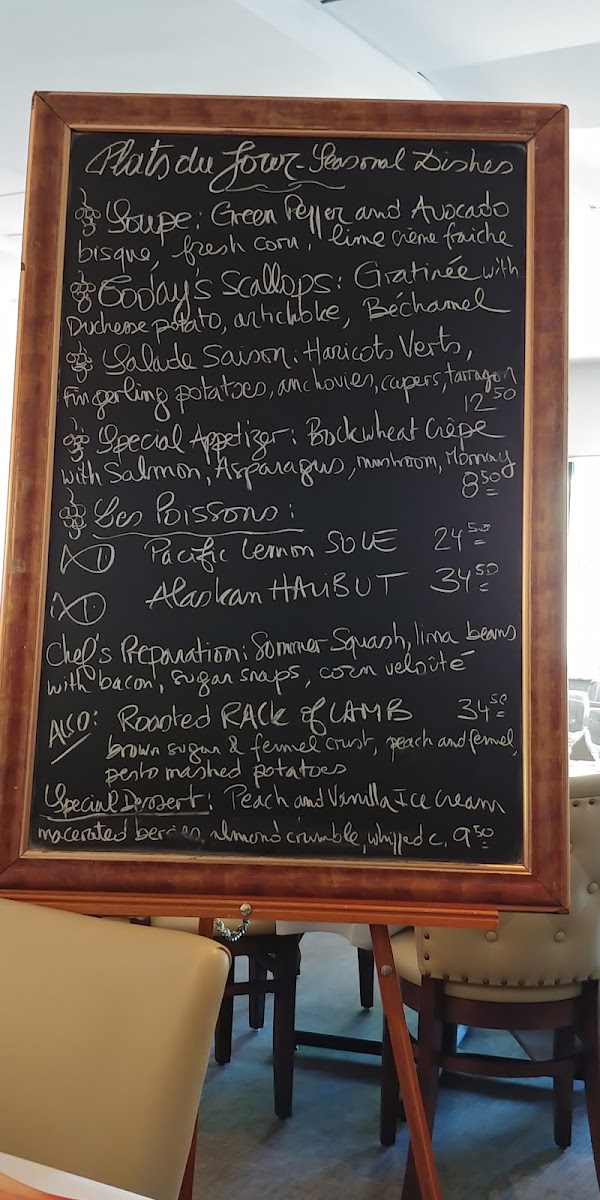 Plats du Jour - Seasonal Dishes
Soupe: Green Pepper and Avocado
bisque, fresh corn, lime crème fraiche
Today's Scallops: Gratinée with
Duchesse potato, artichoke, Béchamel
Salade Saison: Haricots Verts,
Fingerling potatoes, anchovies, capers, tarragon
12 50
Special Appetizer: Buckwheat Crêpe
with Salmon, Asparagus, mushroom, Mornay
8 50
Les Poissons:
Pacific Lemon SOLE 24 50
Alaskan HALIBUT 34 50
Chef's Preparation: Sommer Squash, lima beans
with bacon, sugar snaps, corn velouté
ALSO: Roasted RACK of LAMB 34 50
brown sugar & fennel crust, peach and fennel,
pesto mashed potatoes
Special Dessert: Peach and Vanilla Ice Cream
macerated berries, almond crumble, whipped c. 9 50